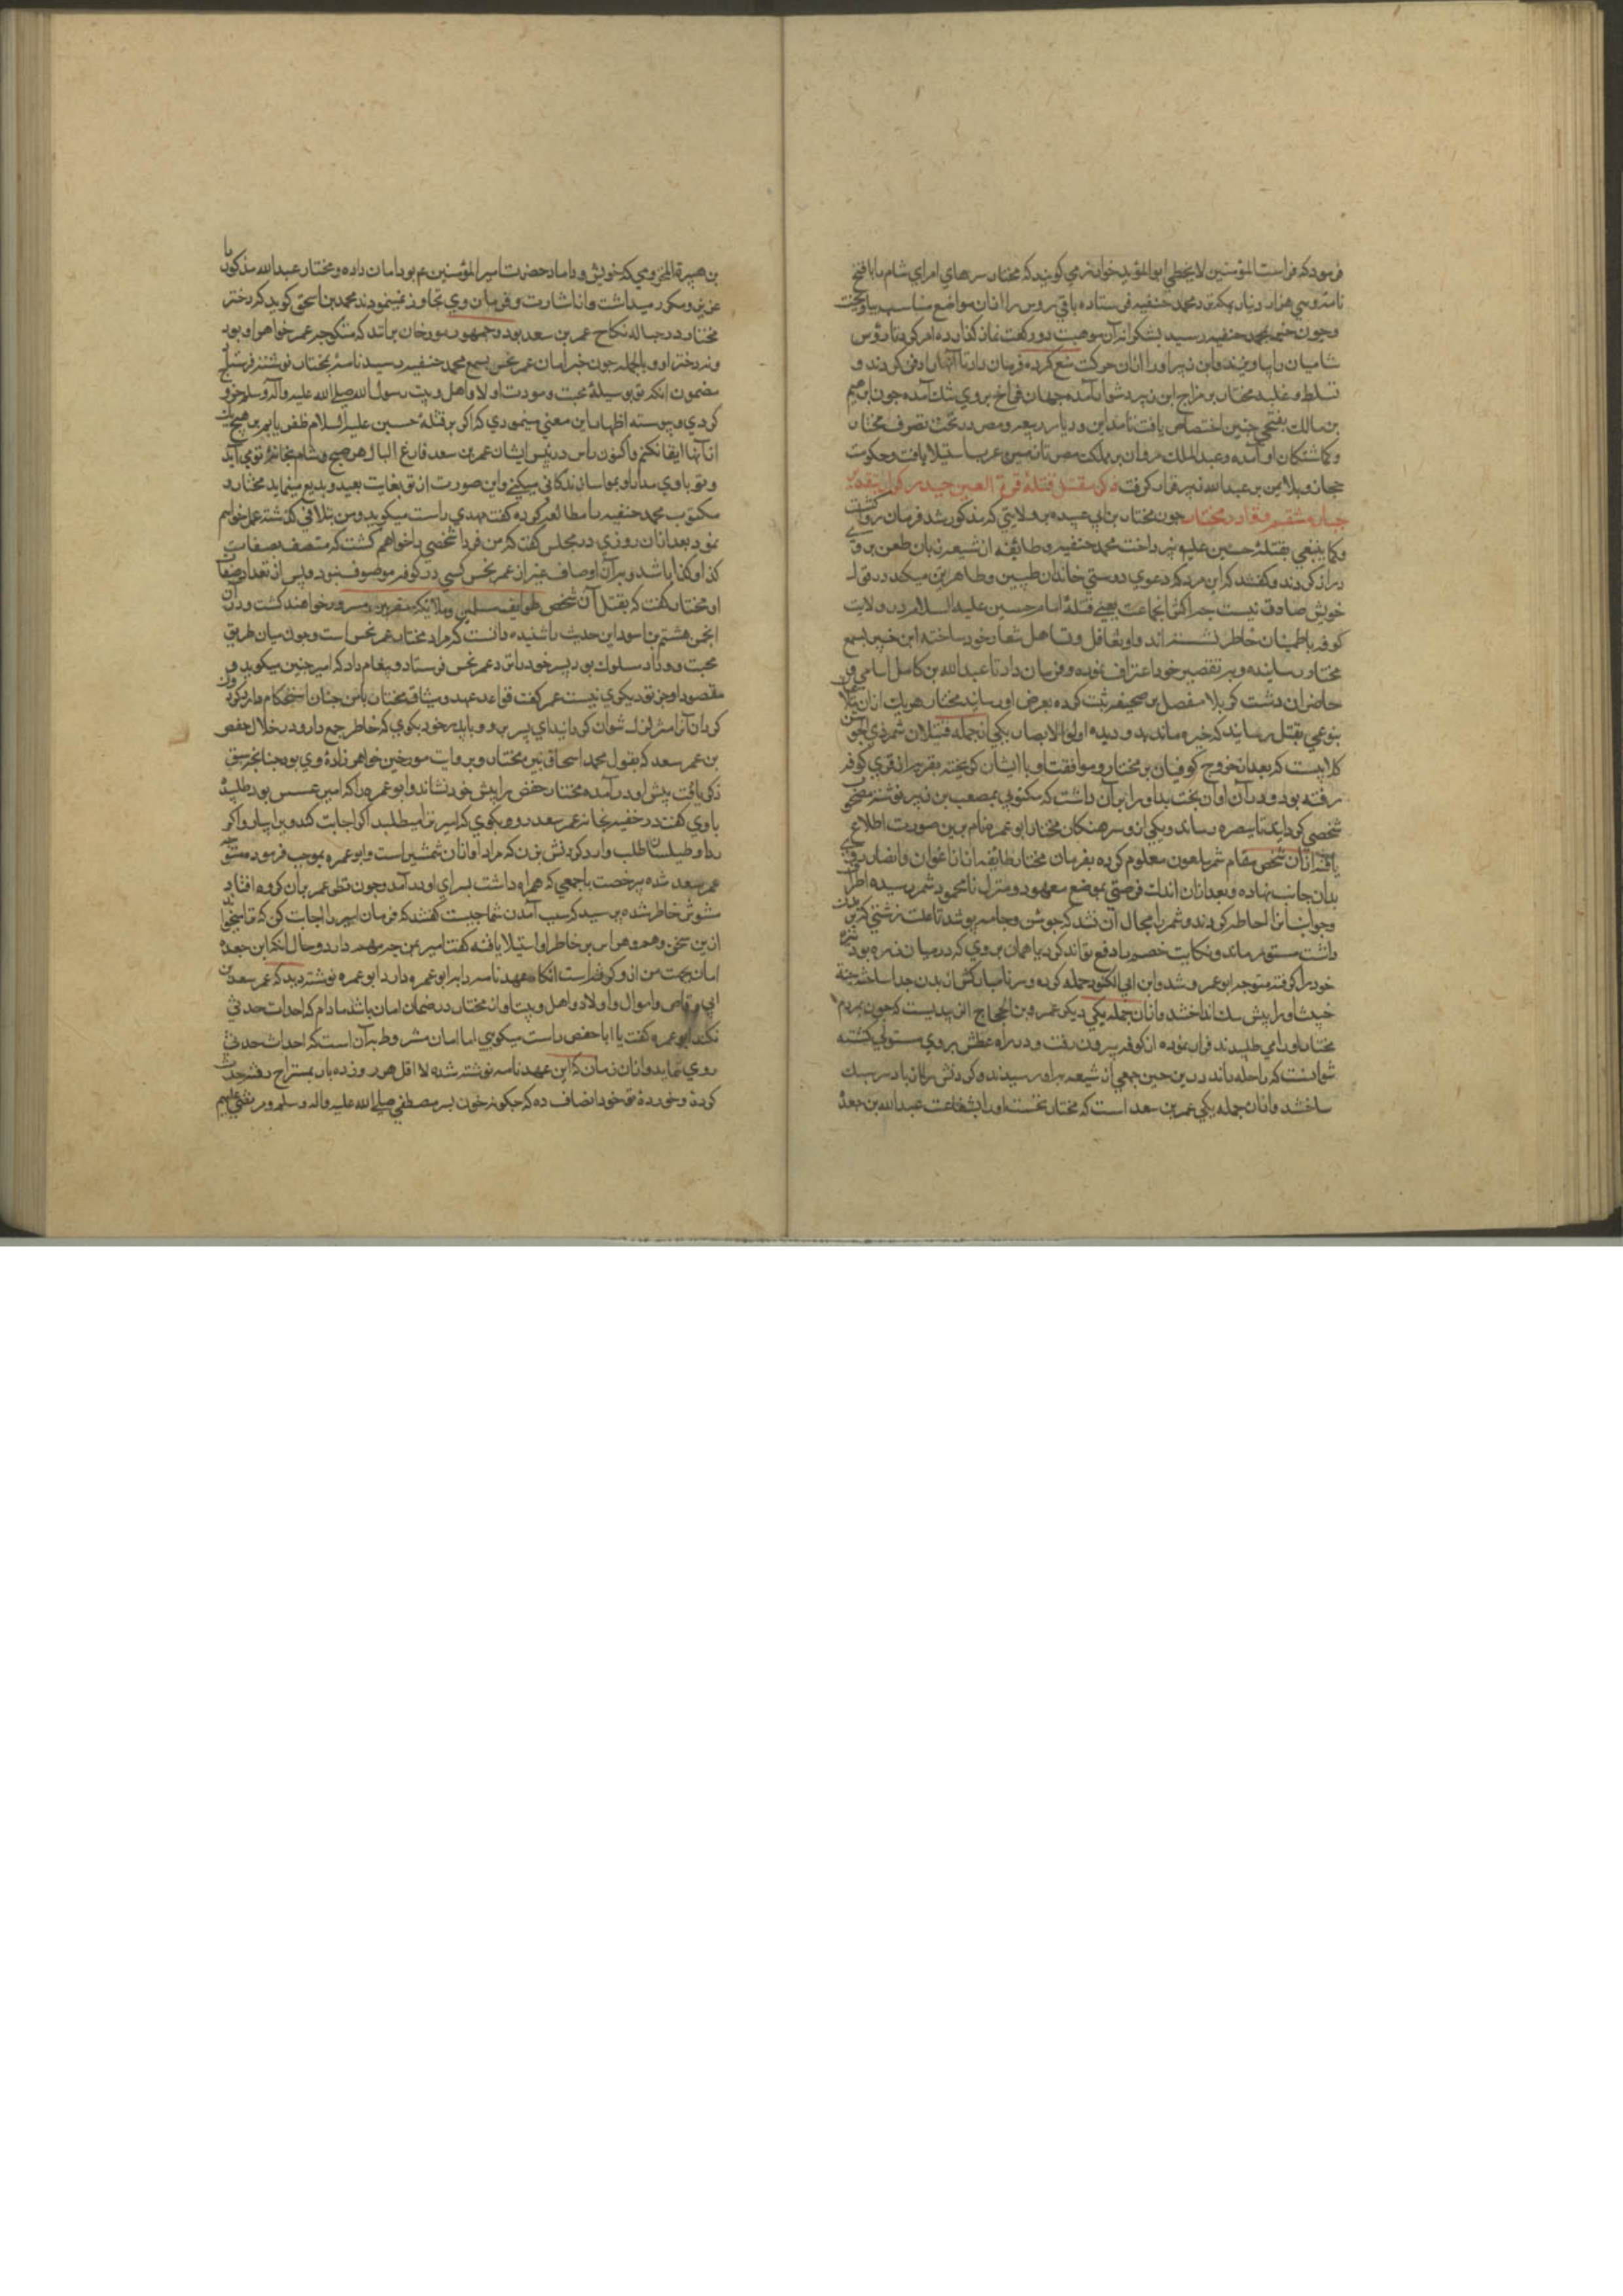 فرمود که فراست المؤمنین لا یخطی ابو المؤید خوارزمی کوید که مختار سرهای امرای شام را با فتح
نامه و سی هزار دینار بمکه نزد محمد حنفیه فرستاده باقی روس را از ان مواضع مناسب بیاویخت
و چون خبر بمحمد حنفیه رسید بشکرانه آن موهبت دو رکعت نماز کذارده امر کرد تا رؤس
شامیان را بیاویزند و ابن زبیر او را از ان حرکت منع کرده فرمان داد تا آنها را دفن کردند و
تسلط و غلبه مختار بر مزاج ابن زبیر دشوار آمده جهان فراخ بروی تنک آمده چون ابرهیم
بن مالک بفتحی چنین اختصاص یافت تمامی دیار ربیعه و مصر در تحت تصرف مختار
و کماشتکان او آمده و عبد الملک مروان بر مملکت مصر تا زمین عرب استیلا یافت و حکومت
حجاز و بلاد یمن بر عبد الله زبیر قرار کرفت ذکر مقتل قتلهٔ قرة العین حیدر کرار
جون مختار بن ابی عبیده بر ولایتی که مذکور شد فرمان روا کشت
و کما ینبغی بقتلهٔ حسین علیه نپرداخت محمد حنفیه و طائفه از شیعه زبان طعن بر وی
دراز کردند و کفتند که این مرد که دعوی دوستی خاندان طیبین و طاهرین میکند در قول
خویش صادق نیست چرا که انجماعت یعنی قتلهٔ امام حسین علیه السلام در ولایت
کوفه باطمینان خاطر نشسته اند و او بتغافل و تساهل شعار خود ساخته این خبر بسمع
مختار رسانیده و بر تقصیر خود اعتراف نموده و فرمان داد تا عبد الله بن کامل اسامی
حاضران دشت کربلا مفصل بر صحیفه ثبت کرده بعرض او رسانید مختار هر یک از ان
بنوعی بقتل رسانید که خیره ماند بدو دیده اولو الابصار یکی از جمله قتیلان شمر ذی الجوشن
کلابیست که بعد از خروج کوفیان بر مختار و موافقت او با ایشان کریخته بقریه از قری کوفه
رفته بود و در آن اوان بخت بد او را بر آن داشت که مکتوبی بمصعب بن زبیر نوشته مصحوب
شخصی کرداند تا ببصره رساند و یکی از سرهنکان مختار ابو عمره نام برین صورت اطلاع
یافته از ان شخص مقام شمر ملعون معلوم کرده بفرمان مختار طائفه از اعوان و انصار
بدان جانب نهاده و بعد از ان اندک فرصتی بموضع معهود و منزل نامحمود شمر رسیده اطراف
و جوانب انرا احاطه کردند و شمر را مجال ان نشد که جوشن و جامه پوشد تا علت زشتی که
داشت مستور ماند و نکایت خصم را دفع تواند کرد با همان بر وی که در میان
خود را کرفته متوجه ابو عمره شد و ابن ابی الکنود حمله کرده و سر نامبارکش از بدن جدا ساخته جثه
خبیث او را پیش سک انداختند و از ان جمله یکی دیکر عمرو بن الحجاج الزبیدیست که چون مردم
مختار او را می طلبیدند فرار نموده از کوفه بیرون رفت و در راه عطش بروی مستولی کشته
توانست که راحله راند درین حین جمعی از شیعه بدو رسیدند و کردنش را از بار سر سبک
ساختند و از ان جمله یکی عمر بن سعد است که مختار نخست او را بشفاعت عبد الله بن جعده
بن هبیرة المخزومی که خویش و داماد حضرت امیر المؤمنین ع بود امان داده و مختار عبد الله مذکور را
عزیز و مکرم میداشت و از اشارت و فرمان وی تجاوز نمینمودند محمد بن اسحق کوید که دختر
مختار در حباله نکاح عمر بن سعد بود و جمهور مورخان برانند که منکوحه عمر خواهر او بود
و نه دختر او و بالجمله چون خبر امان عمر نحس بسمع محمد حنفیه رسید نامهٔ بمختار نوشته فرستاد
مضمون انکه تو بوسیلهٔ محبت و مودت اولاد و اهل و بیت رسول الله صلی الله علیه و اله و سلم خروج
کردی و پیوسته اظهار این معنی مینمودی که اکر بر قتلهٔ حسین علیه السلام ظفر یابم بر هیچ یک
از آنها ابقا نکنم و اکنون راس و رئیس ایشان عمر بن سعد فارغ البال هر صبح و شام بخانهٔ تو می آید
و تو با وی مدارا و مواسا زندکانی میکنی و این صورت از تو بغایت بعید و بدیع مینماید مختار
مکتوب محمد حنفیه را مطالعه کرده کفت مهدی راست میکوید و من بتلافی کذشته عمل خواهم
نمود بعد از ان روزی در مجلس کفت که من فردا شخصی را خواهم کشت که متصف بصفات
کذا و کذا باشد و بر آن اوصاف غیر از عمر نحس کسی در کوفه موصوف نبود و پس از تعداد صفات
او مختار کفت که بقتل آن شخص طوایف مسلمین و ملائکه مقربین مسرور خواهند کشت و در ان
انجمن هشتم بن اسود این حدیث را شنیده دانست که مراد مختار عمر نحس است و چون میان طریق
محبت و وداد مسلوک بود پسر خود را نزد عمر نحس فرستاد و پیغام داد که امیر چنین میکوید و
مقصود او جز تو دیکری نیست عمر کفت قواعد عهد و میثاق مختار با من چنان استحکام دارد که
کردان آنرا متزلزل نتوان کردانید ای پسر برو و با پدر خود بکوی که خاطر جمع دارد و در خلال حفص
بن عمر سعد که بقول محمد اسحاق نبیرهٔ مختار و بروایت مورخین خواهرزادهٔ وی بود چنانچه سبق
ذکر یافت پیش او در آمده مختار حفص را پیش خود نشاند و ابو عمره را که امیر عسس بود طلبیده
با وی کفت در خفیه بخانهٔ عمر سعد رو و بکوی که امیر ترا میطلبد اکر اجابت کند و بیار و اکر
ردا و طیلسان طلب دارد کردنش بزن که مراد او از ان شمشیر است و ابو عمره بموجب فرموده متوجه
عمر سعد شده بی رخصت با جمعی که همراه داشت بسرای او در آمد و چون نظر عمر بآن کروه افتاد
مشوش خاطر شده پرسید که سبب آمدن شما چیست کفتند که فرمان امیر را اجابت کن که ترا میخواند
ازین سخن وهم و هراس بر خاطر او استیلا یافته کفت امیر بمن چه مهم دارد و حال انکه ابن جعده
امان بجهت من از و کرفته است انکاه عهدنامه را بابو عمره داد ابو عمره نوشته دید که عمر سعد بن
ابی وقاص و اموال و اولاد و اهل و بیت او از مختار در ضمان امان باشد مادام که احداث حدثی
نکند ابو عمره کفت یا ابا حفص راست میکویی اما امان مشروط بر آن است که احداث حدثی
روی ننماید و از ان زمان که این عهدنامه نوشته شده لا اقل هر روز ده بار بمستراح رفته حدث
کرده و خورده تو خود انصاف ده که چکونه خون پسر مصطفی صلی الله علیه و اله و سلم و مرتضی علیهم